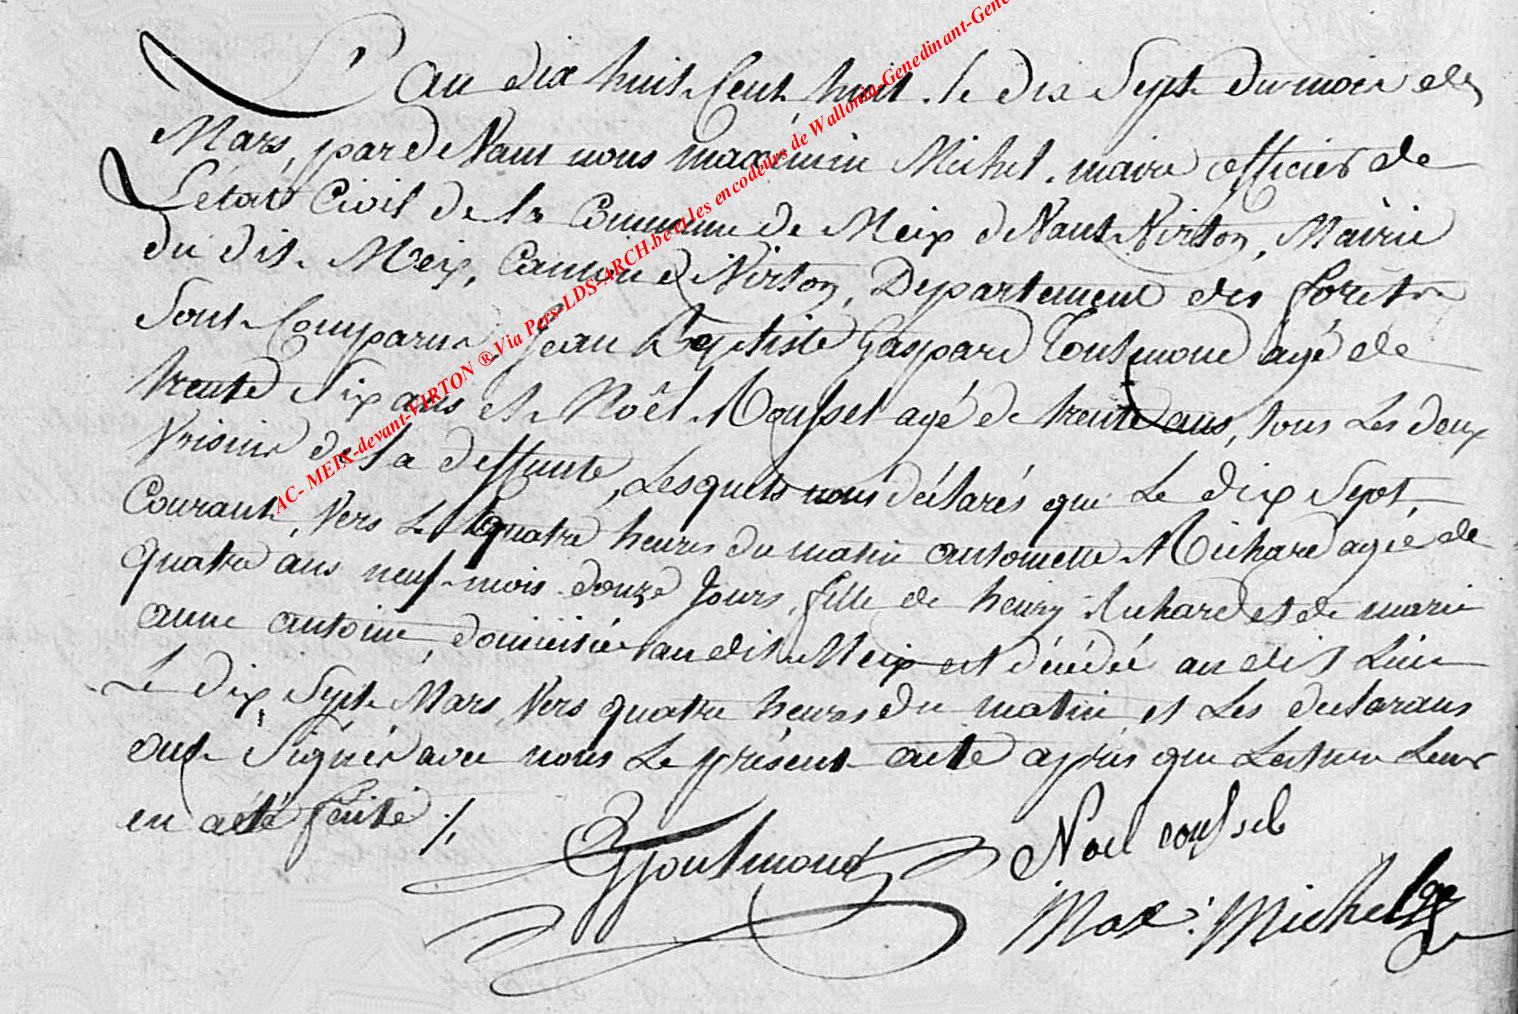 L'an dix huit Cent huit le dix Sept du mois de
Mars, par deVant nous maximin Michel, maire officier de
L'état Civil de la Commune de Meix deVant Virton, Mairie
du dit Meix, Canton de Virton, Departement des forêts
Sont Comparus Jean Baptiste Gaspard Toutmond agé de
trente Six ans et Noêl Rousset agé de trente ans, tous Les deux
Voisins de la deffunte, Lesquels nous déclarés que Le dix Sept
Courant, Vers Le quatre heures du matin antoinette Richard agée de
quatre ans neuf mois douze Jours, fille de henry Richard et de marie
anne antoine, domiciliés au dit Meix est décédée au dit Lieu
Le dix Sept Mars Vers quatre heures du matin et Les declarans
ont Signés avec nous Le présent acte après que Lecture Leur
en a été faite ./.
Toutmond
Noel
Max: Michel
AC- MEIX-devant-VIRTON ® Via Pers-LDS-ARCH.be et les encodeurs de Wallonia-Genedinant-Gene